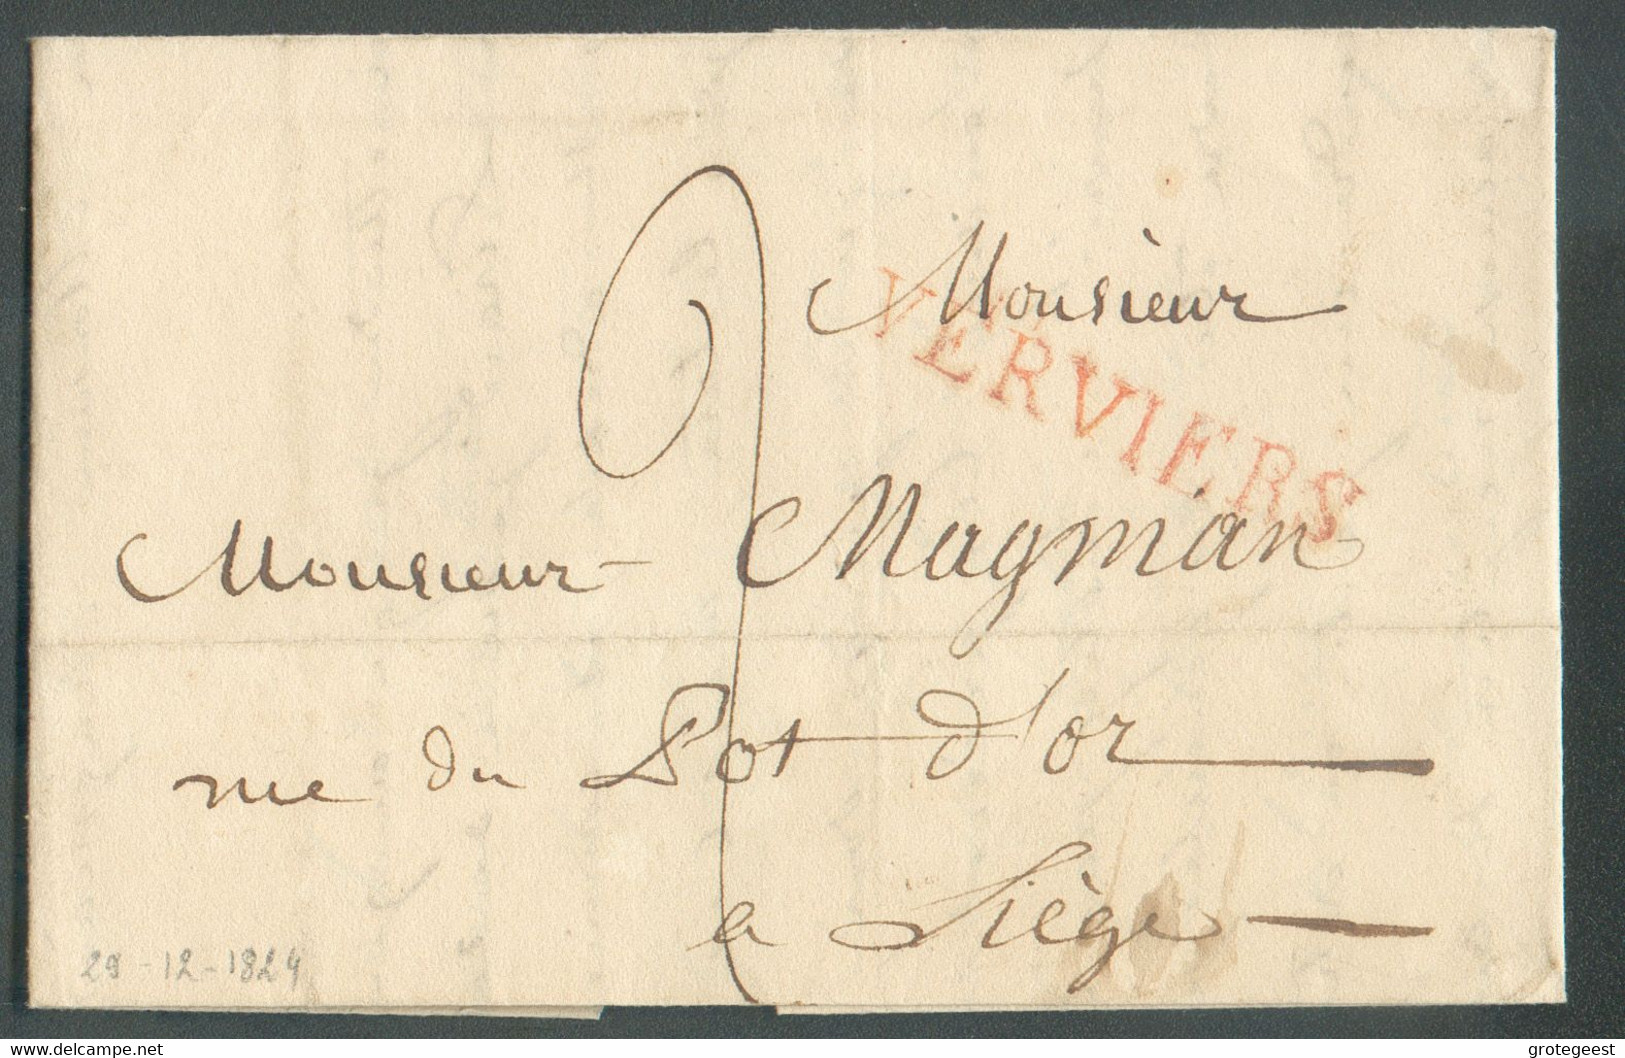 Monsieur
VERVIERS
Monsieur Magman
rue du Pot d'or
a Liège
29-12-1824
delcampe.net
grotegeest